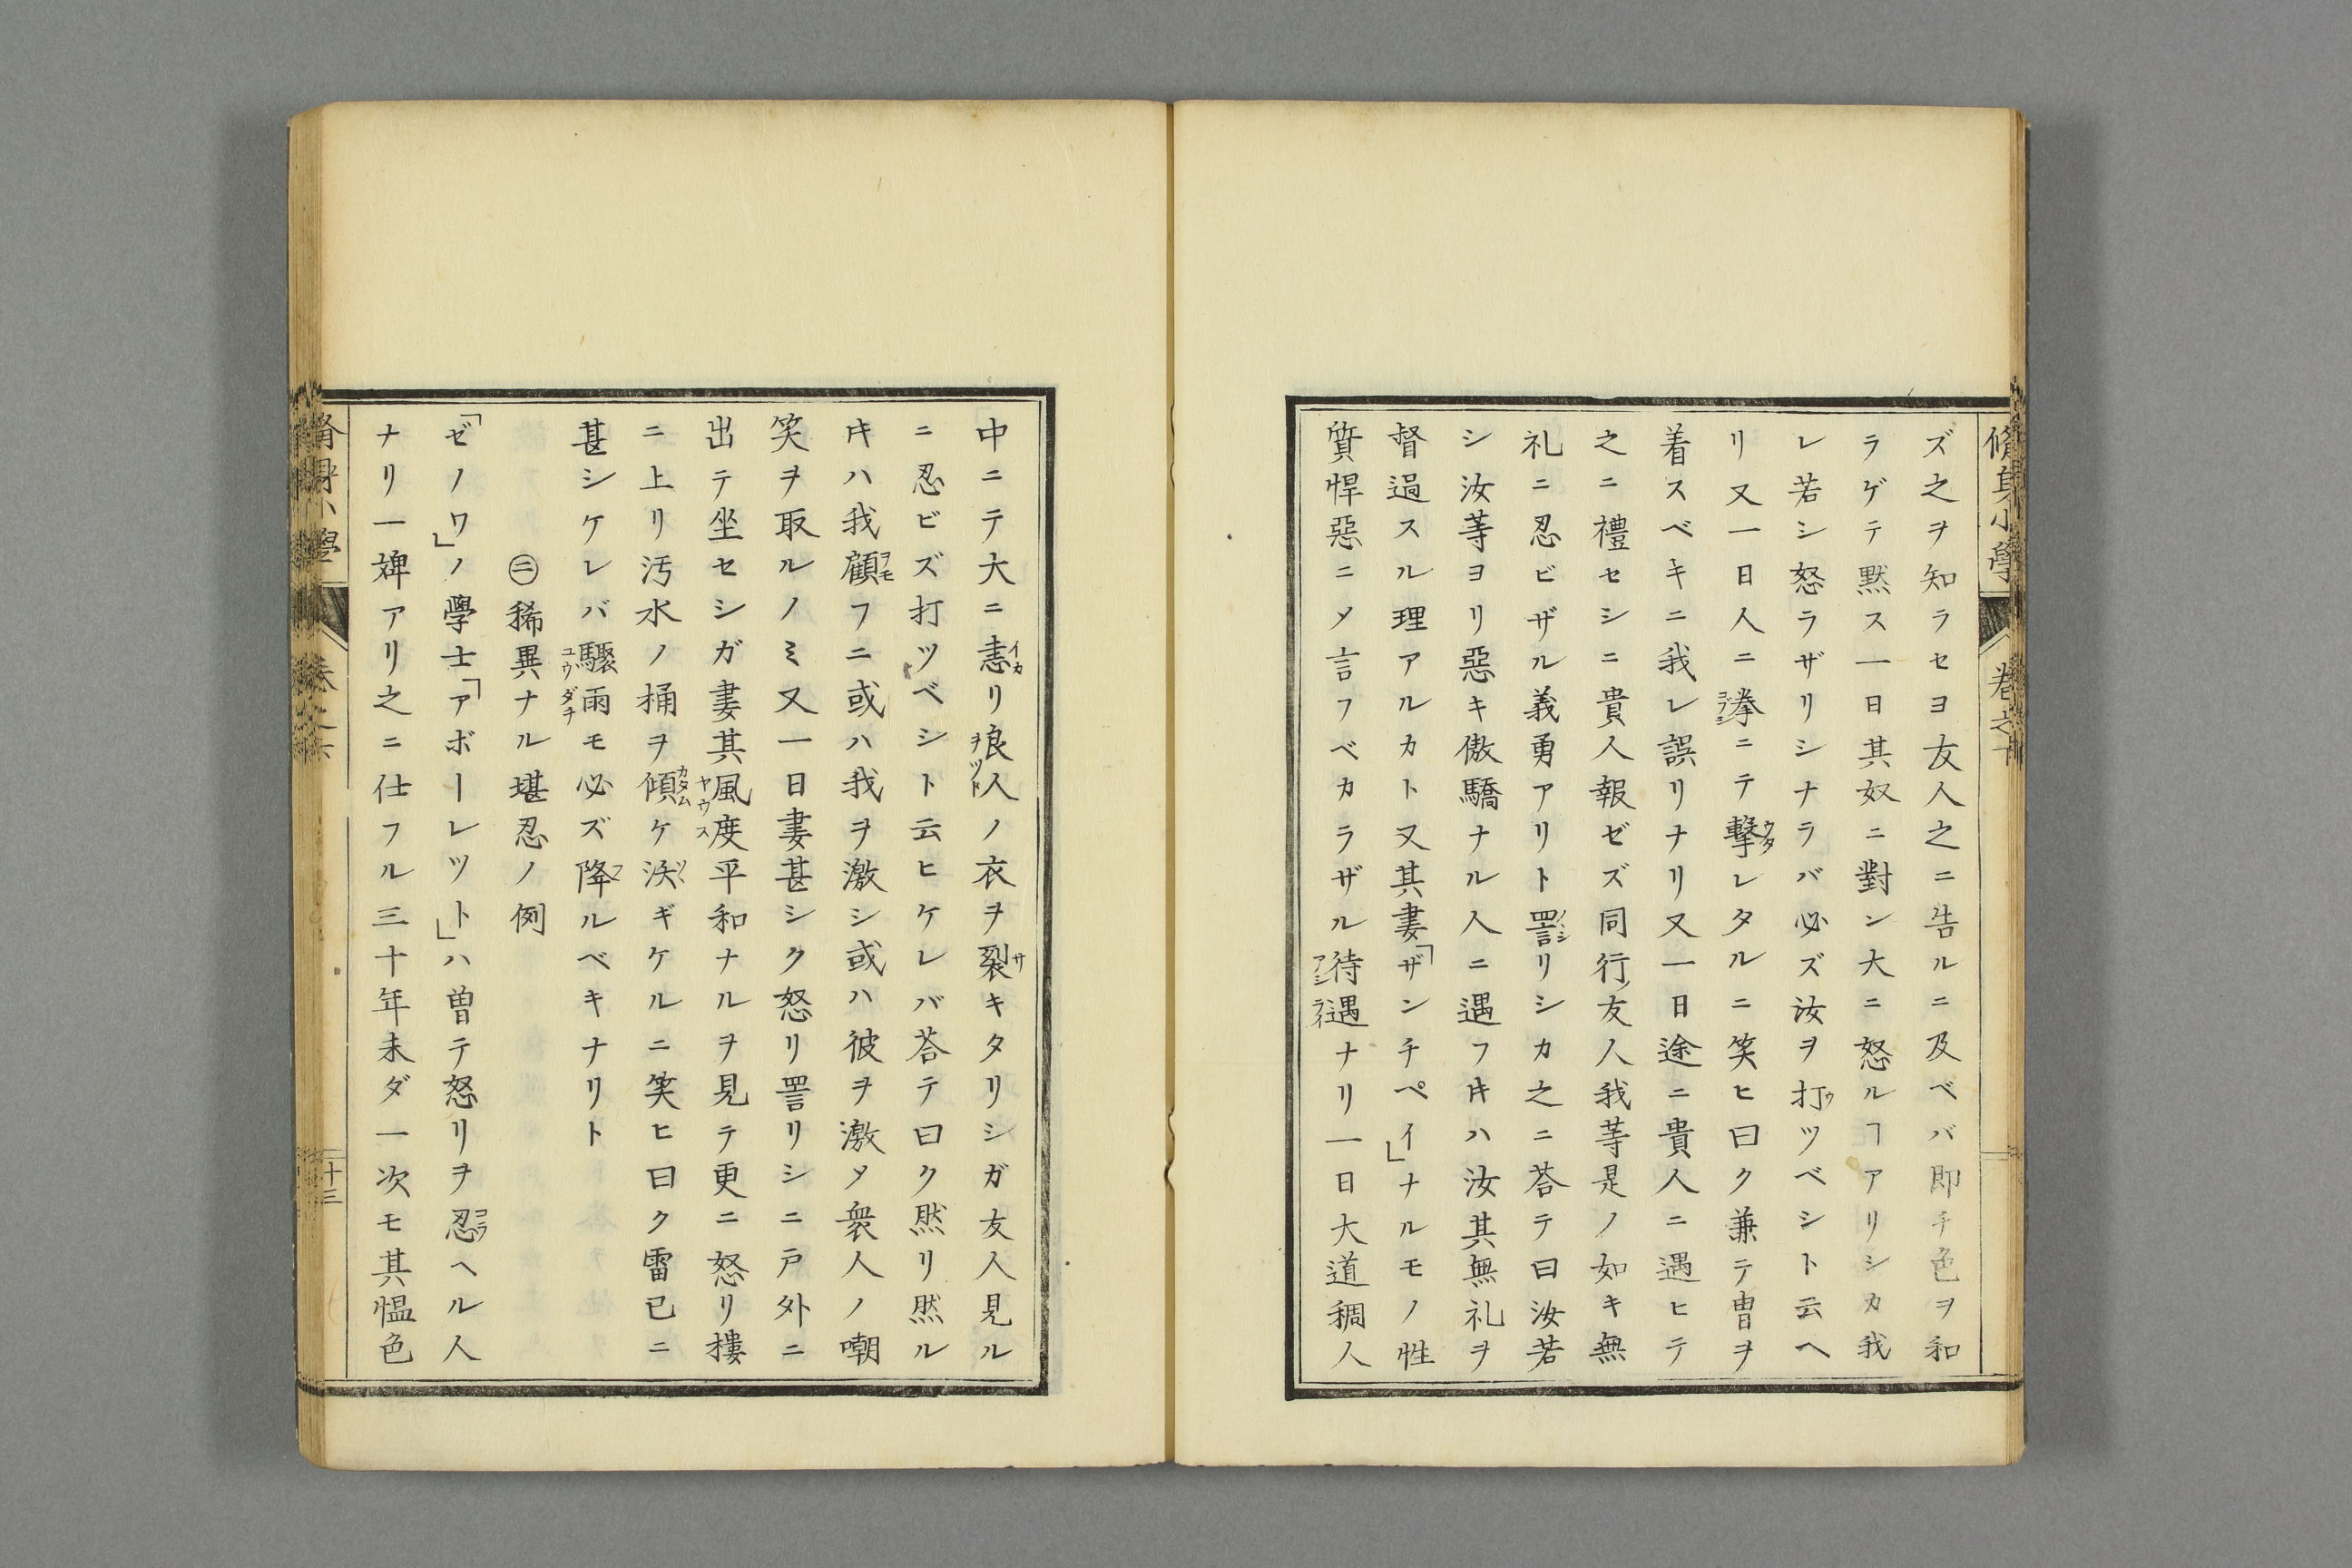 ズ之ヲ知ラセヨ友人之ニ告ルニ及ベバ即チ色ヲ和
ラゲテ黙ス一日其奴ニ對ン大ニ怒ルヿアリシカ我
レ若シ怒ラザリシナラバ必ズ汝ヲ打ツベシト云ヘ
リ又一日人ニ拳ニテ撃レタルニ笑ヒ曰ク兼テ冑ヲ
着スベキニ我レ誤リナリ又一日途ニ貴人ニ遇ヒテ
之ニ禮セシニ貴人報ゼズ同行ノ友人我等是ノ如キ無
礼ニ忍ビザル義勇アリト詈リシカ之ニ荅テ曰汝若
シ汝等ヨリ惡キ傲驕ナル人ニ遇フ𪜈ハ汝其無礼ヲ
督過スル理アルカト又其妻「ザンチペイ」ナルモノ性
質悍惡ニ〆言フベカラザル待遇ナリ一日大道稠人
中ニテ大ニ恚リ良人ノ衣ヲ裂キタリシガ友人見ル
ニ忍ビズ打ツベシト云ヒケレバ荅テ曰ク然リ然ル
𪜈ハ我顧フニ或ハ我ヲ激シ或ハ彼ヲ激〆衆人ノ嘲
笑ヲ取ルノミ又一日妻甚シク怒リ詈リシニ戸外ニ
出テ坐セシガ妻其風度平和ナルヲ見テ更ニ怒リ樓
ニ上リ汚水ノ桶ヲ傾ケ濺ギケルニ笑ヒ曰ク雷已ニ
甚シケレバ驟雨モ必ズ降ルベキナリト
㊁稀異ナル堪忍ノ例
「ゼノワ」ノ學士「アボーレツト」ハ曽テ怒リヲ忍ヘル人
ナリ一婢アリ之ニ仕フル三十年未ダ一次モ其慍色
十三